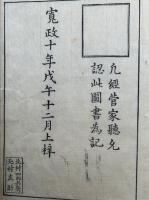 凡經管家聽允
認此圖書為記
寬政十年戊午十二月上梓